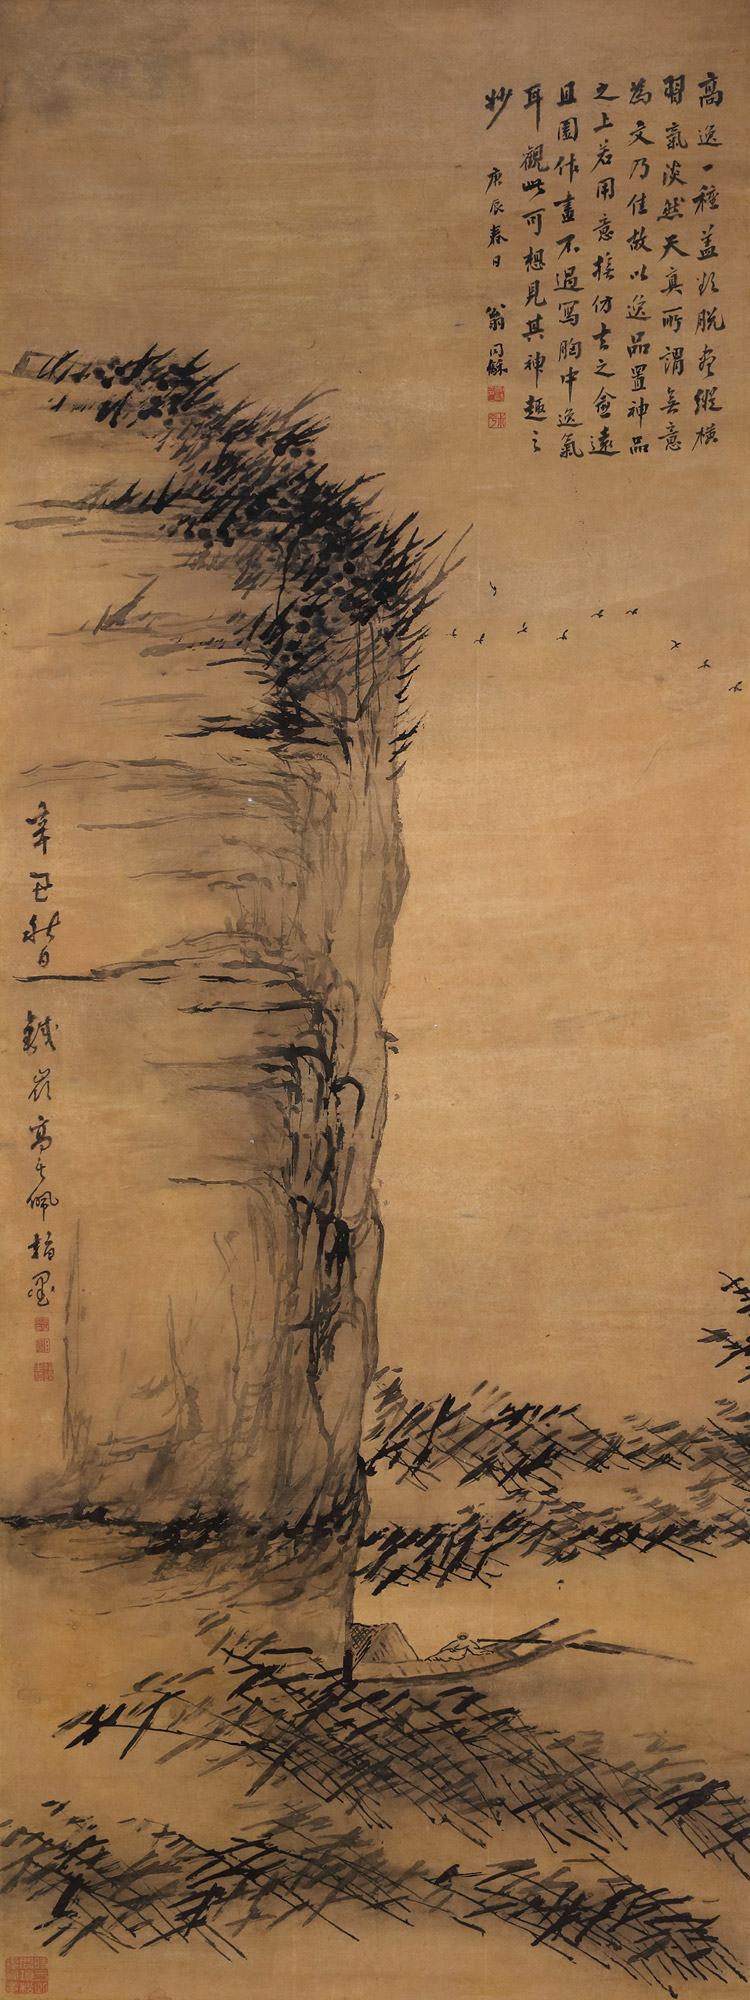 高逸一種蓋欲脫盡縱橫
習氣淡然天真所謂無意
為文乃佳故以逸品置神品
之上若用意模仿去之愈遠
且圖作畫不過寫胸中逸氣
耳觀此可想見其神趣之
妙
庚辰春日 翁同龢
辛丑秋日
鐵嶺高其佩指墨